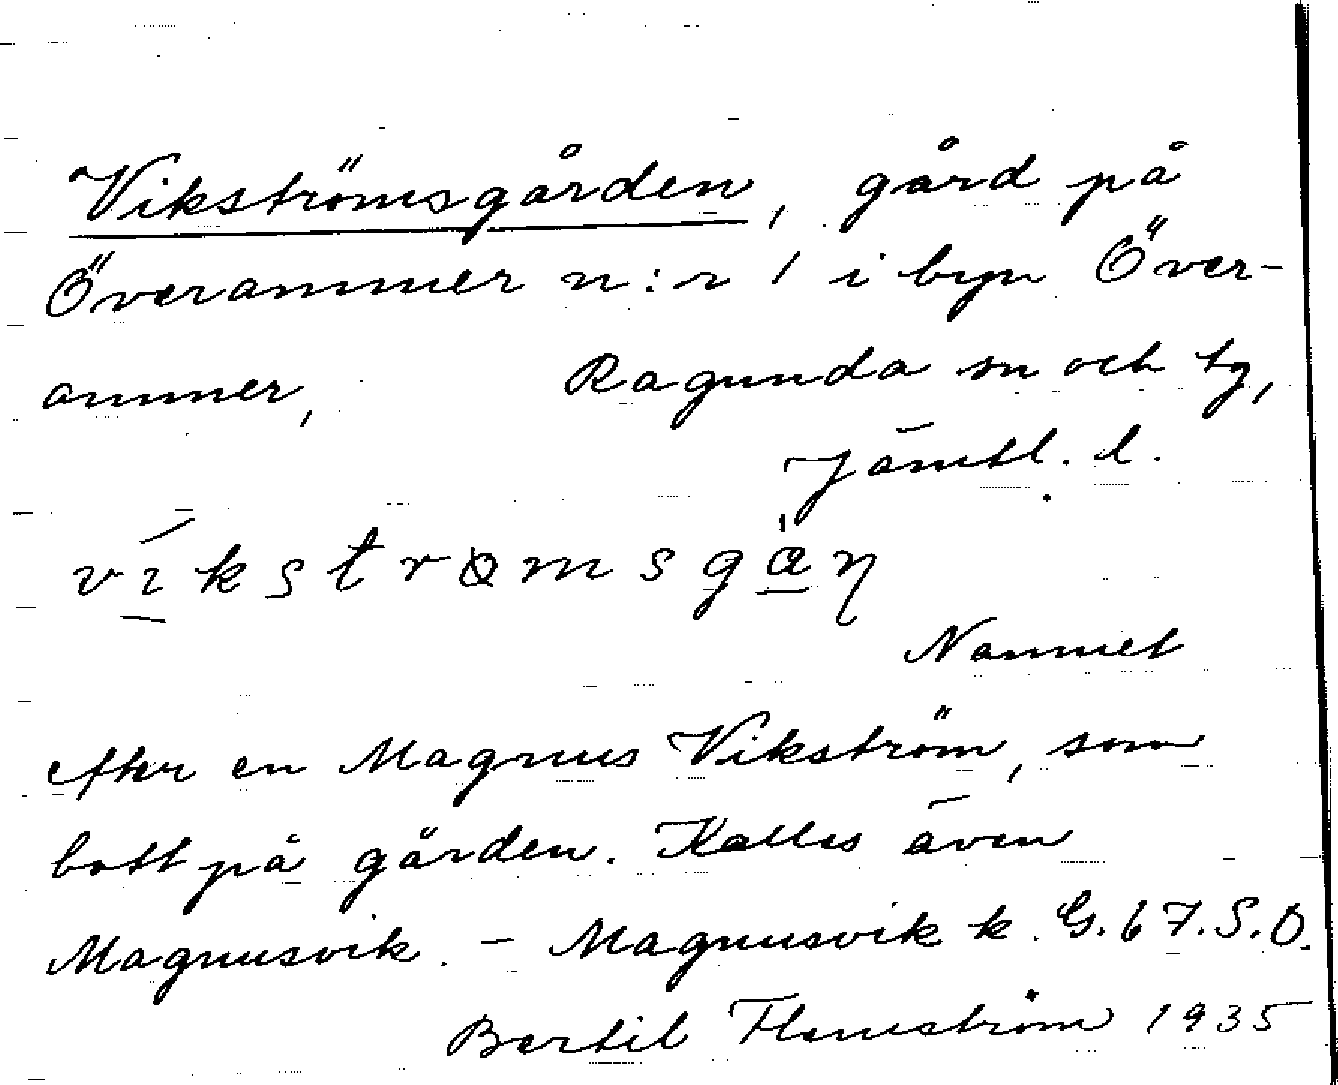 Vikströmsgården, gård på
Överammer n:r 1 i byn Över-
ammer, Ragunda sn och tg,
Jämtl. l.
víkstrømsgä̀η
Namnet
efter en Magnus Vikström, som
bott på gården. Kallas även
Magnusvik. – Magnusvik k. G. 67. S. O.
Bertil Flemström 1935